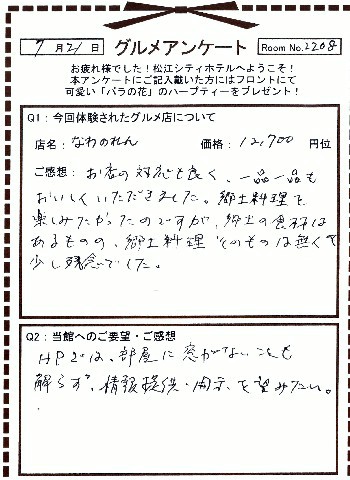 7月21日 グルメアンケート Room No.2208
お疲れ様でした！松江シティホテルへようこそ！
本アンケートにご記入戴いた方にはフロントにて
可愛い「バラの花」のハーブティーをプレゼント！
Q1：今回体験されたグルメ店について
店名：なわのれん 価格：12,700円位
ご感想：お店の対応も良く、一品一品も
おいしくいただきました。郷土料理を
楽しみたかったのですが、郷土の食材は
あるものの、郷土料理そのものは無くて
少し残念でした。
Q2：当館へのご要望・ご感想
HPでは、部屋に窓がないことも
解らず、情報提供・開示を望みたい。